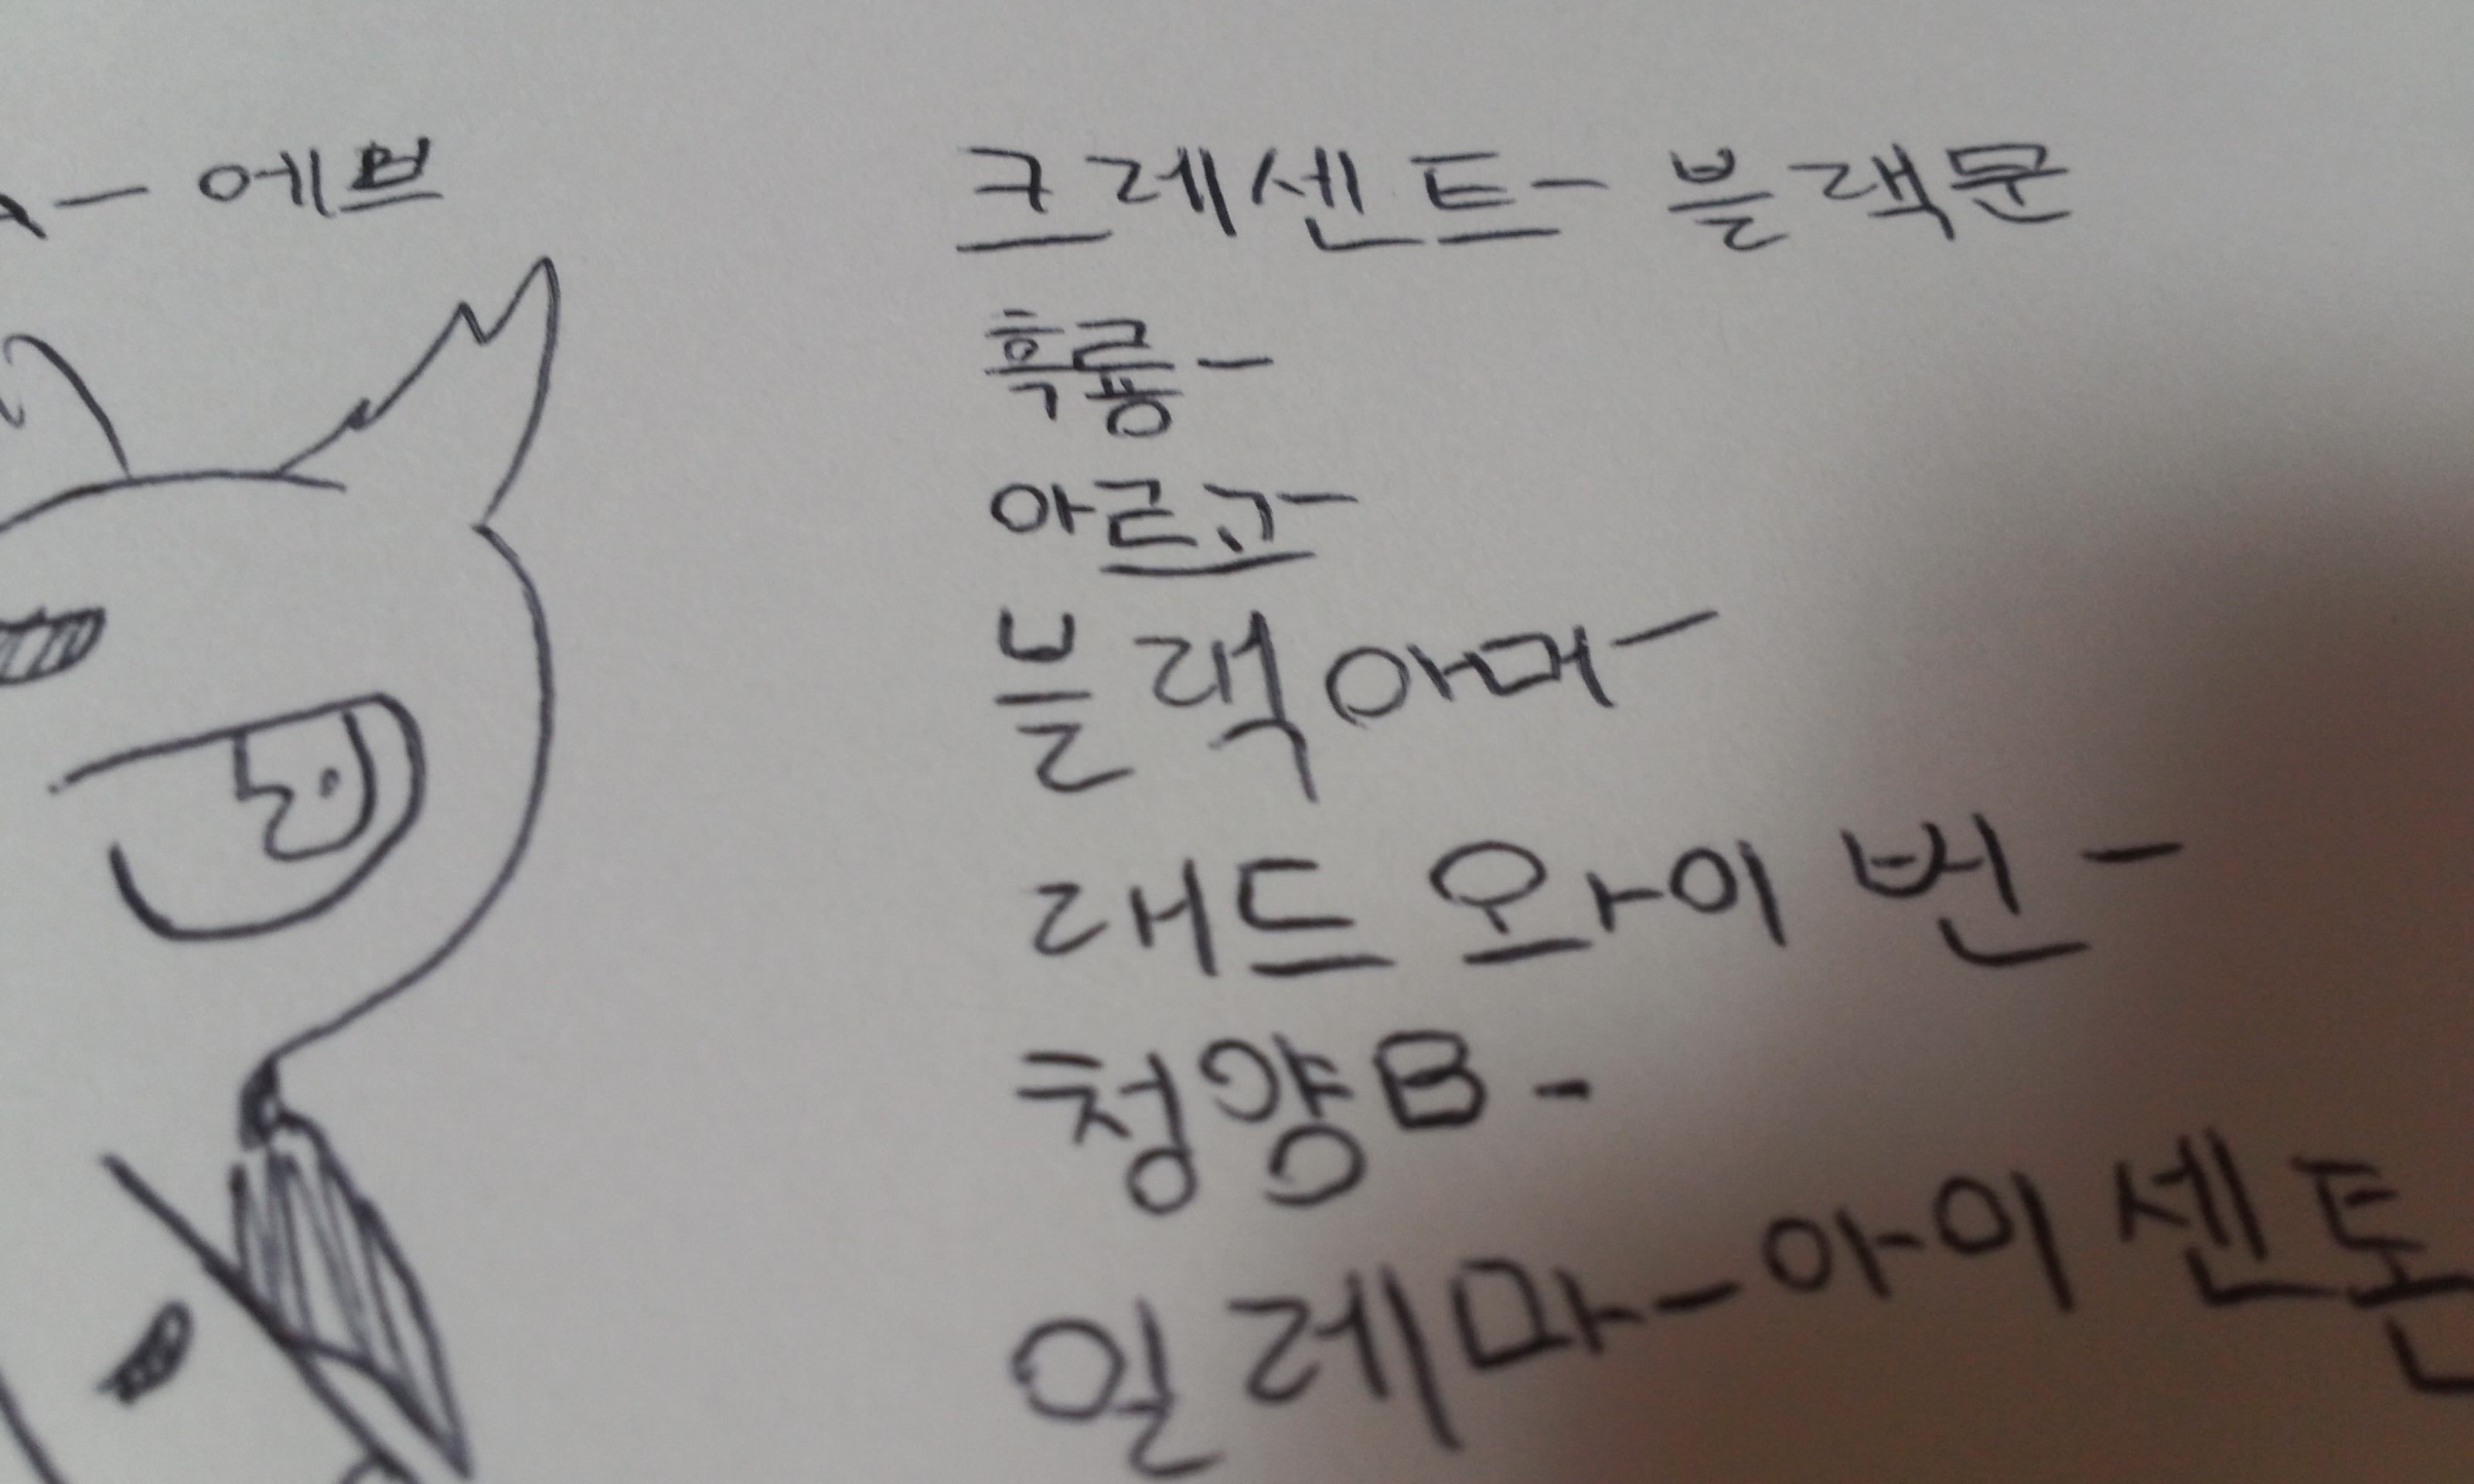 - 에브
크레센트 - 블랙문
흑룡 -
아르고 -
블랙아머 -
래드 와이번 -
청양B -
일레마 - 아이센톤